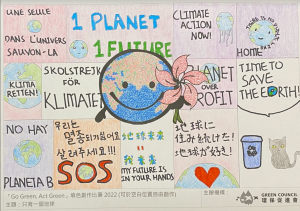 UNE SEULE
DANS L'UNIVERS
SAUVON-LA
1 PLANET
1 FUTURE
CLIMATE
ACTION
NOW!
HOME
KLIMA
RETTEN!
SKOLSTREJK
FÖR
KLIMATET
PLANET
OVER
PROFIT
TIME TO
SAVE
THE EARTH!
NO HAY
PLANETA B
우리는
멸종위기종
살려주세요!!!
SOS
地球未來
=
我未來
MY FUTURE IS
IN YOUR HANDS
地球に
住み続けた!
地球が好き!
「Go Green, Act Green」填色創作比賽 2022 (可於空白位置自由創作)
主題：只有一個地球
主辦機構：
GREEN COUNCIL
環保促進會